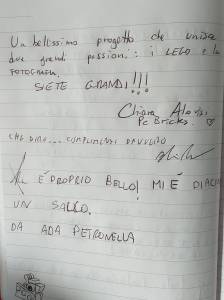 Un bellissimo progetto che unisce
due grandi passioni: i LEGO e la
FOTOGRAFIA.
SIETE GRANDI!!!
Chiara
PC Bricks
CHE DIRE... COMPLIMENTI DAVVERO
È PROPRIO BELLO! MI È PIACIUTO
UN SACCO.
DA ADA PETRONELLA